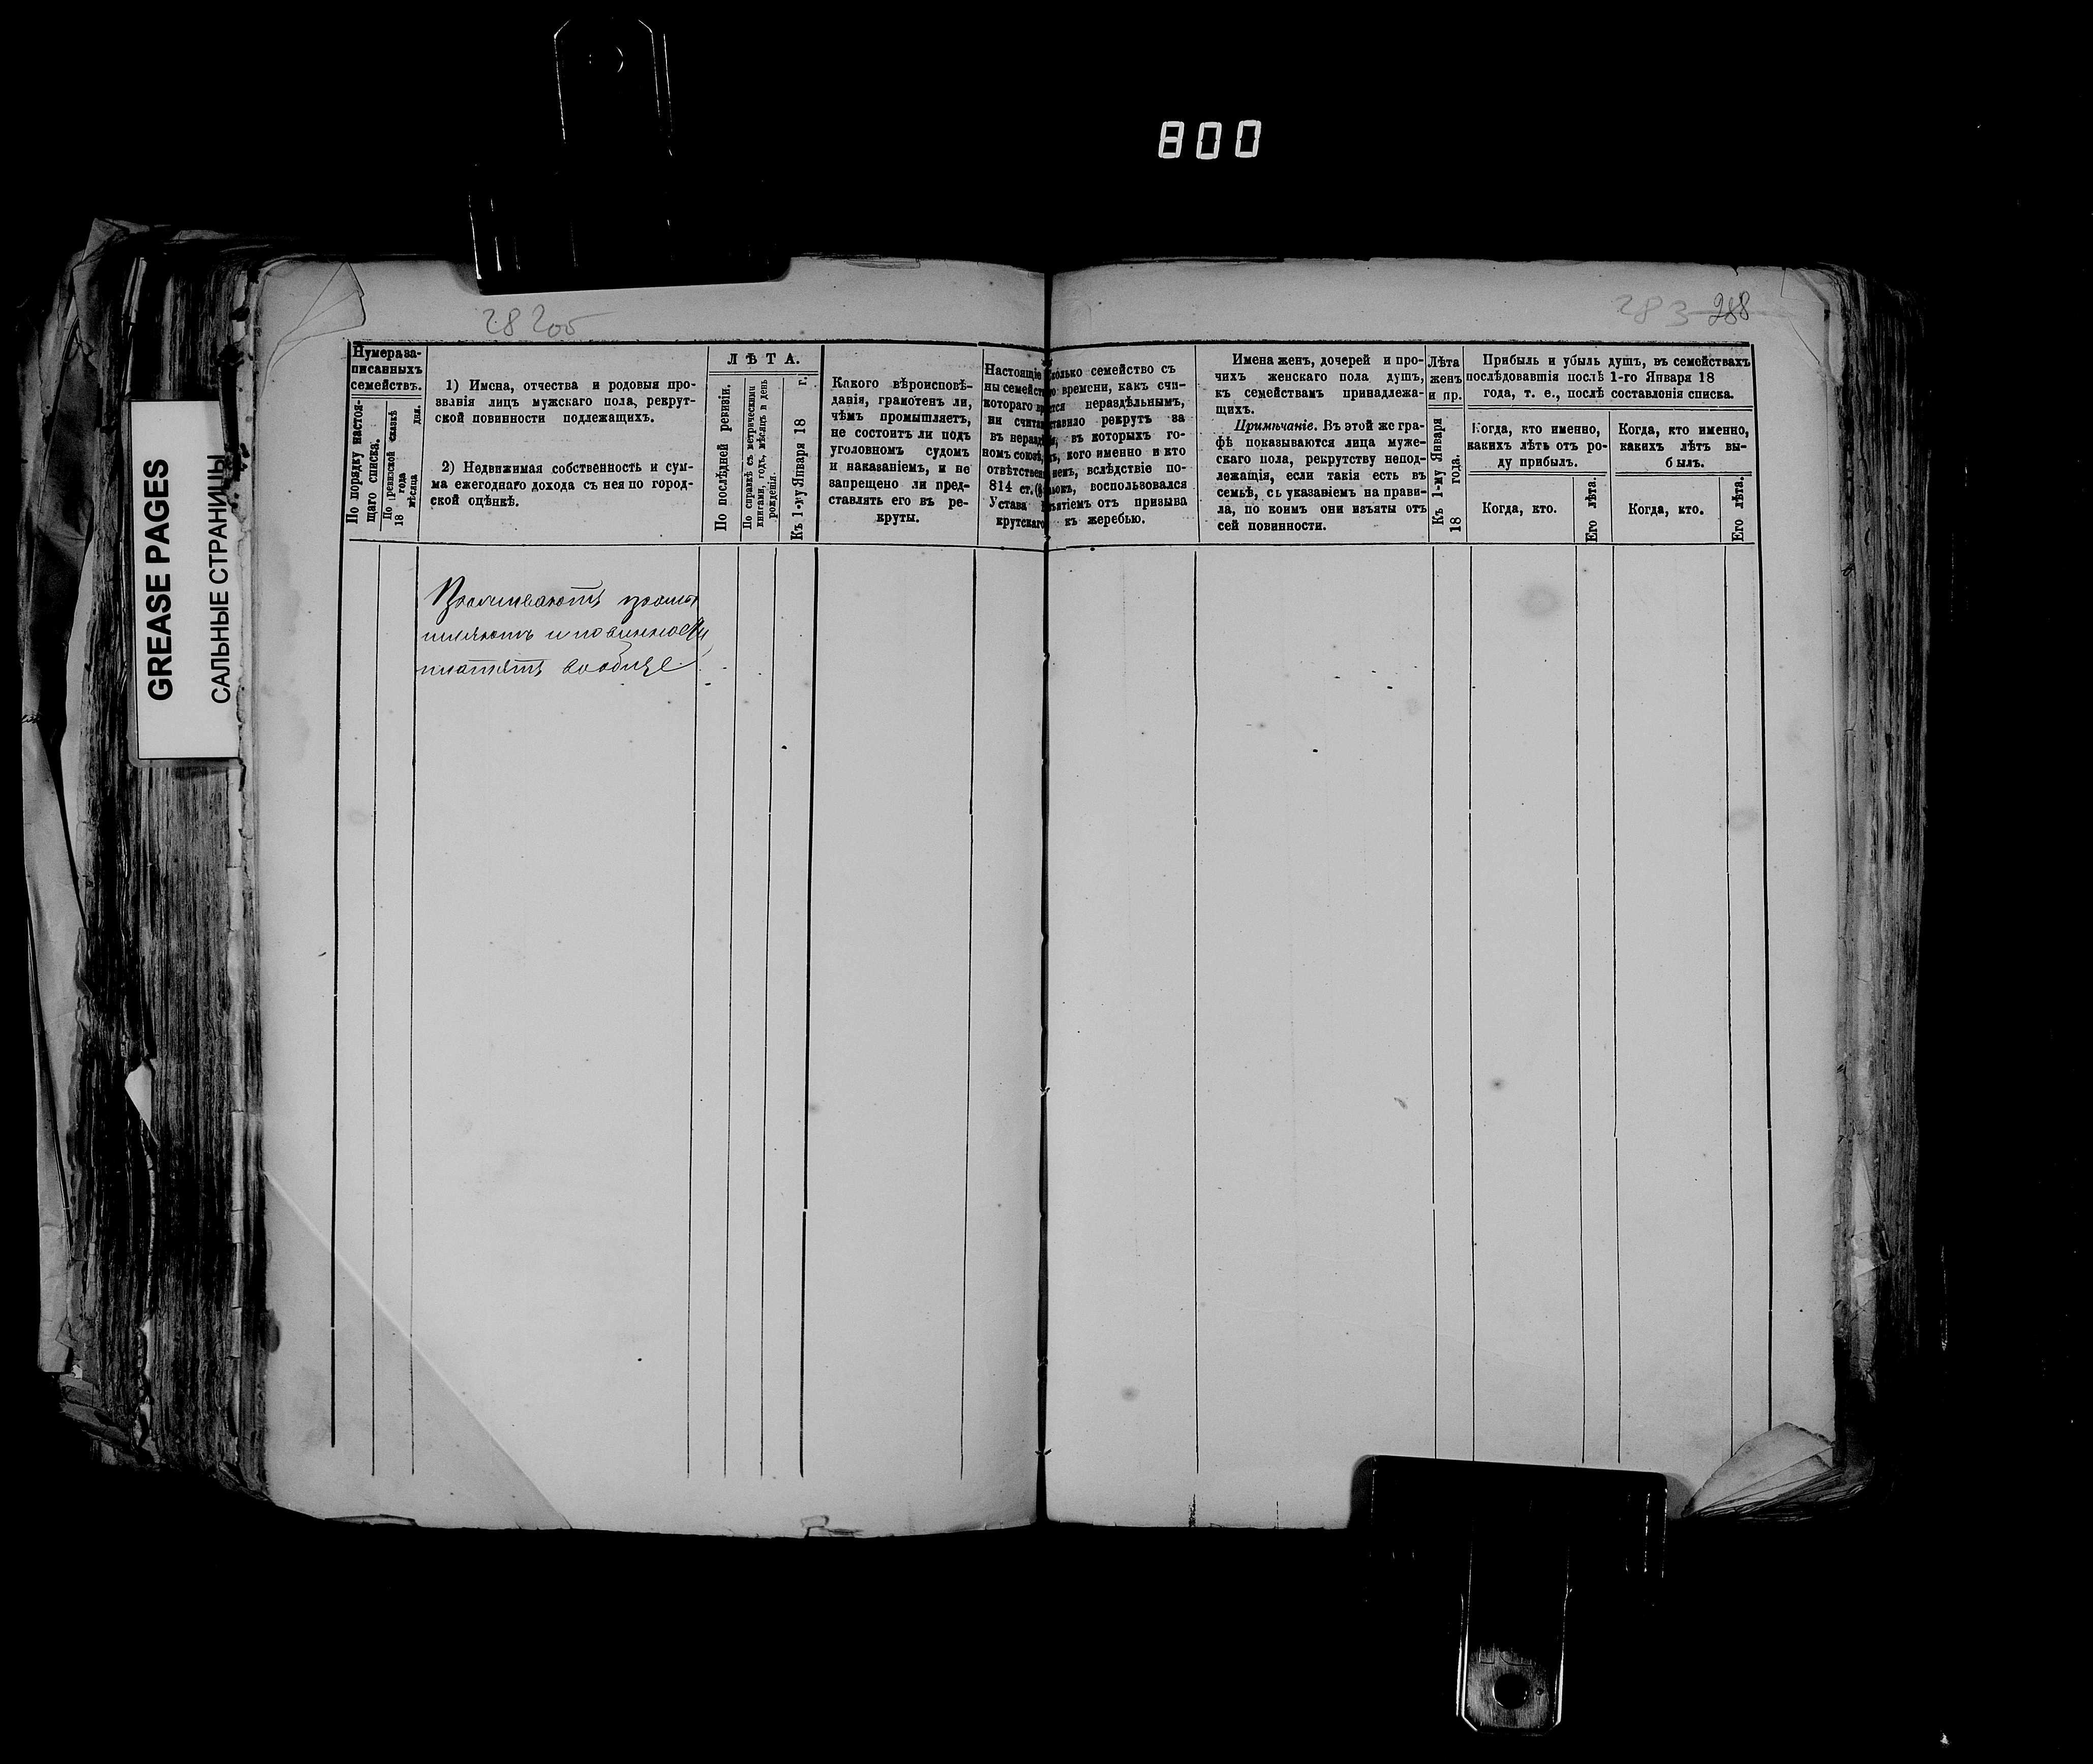 800
GREASE PAGES
САЛЬНЫЕ СТРАНИЦЫ
283 288
Нумера за-
писанныхъ
семействъ.
По порядку настоя-
щаго списка.
По ревизской сказкѣ
18 года
мѣсяца дня.
1) Имена, отчества и родовыя про-
званія лицъ мужскаго пола, рекрут-
ской повинности подлежащихъ.
2) Недвижимая собственность и сум-
ма ежегоднаго дохода съ нея по город-
ской оцѣнкѣ.
ЛѢТА.
По послѣдней ревизіи.
По справкѣ съ метрическими
книгами, годъ, мѣсяцъ и день
рожденія.
Къ 1-му Января 18 г.
Какого вѣроисповѣ-
данія, грамотенъ ли,
чѣмъ промышляетъ,
не состоитъ ли подъ
уголовнымъ судомъ
и наказаніемъ, и не
запрещено ли пред-
ставлять его въ ре-
круты.
Настоящіе
ны семейст
котораго вр
ни счита
въ нераз
номъ союзѣ,
отвѣтствен
814 ст.
Устава
крутскаго
колько семейство съ
времени, какъ счи-
тся нераздѣльнымъ,
тавило рекрутъ за
въ которыхъ го-
кого именно и кто
немъ, вслѣдствіе по-
воспользовался
ъятіемъ отъ призыва
къ жеребью.
Имена женъ, дочерей и про-
чихъ женскаго пола душъ,
къ семействамъ принадлежа-
щихъ.
Примѣчаніе. Въ этой же гра-
фѣ показываются лица муже-
скаго пола, рекрутству непод-
лежащія, если такія есть въ
семьѣ, съ указаніемъ на прави-
ла, по коимъ они изъяты отъ
сей повинности.
Лѣта
женъ
и пр.
Къ 1-му Января
18 года.
Прибыль и убыль душъ, въ семействахъ
послѣдовавшія послѣ 1-го Января 18
года, т. е., послѣ составленія списка.
Когда, кто именно,
какихъ лѣтъ отъ ро-
ду прибылъ.
Когда, кто.
Его лѣта.
Когда, кто именно,
какихъ лѣтъ вы-
былъ.
Когда, кто.
Его лѣта.
Проживаютъ промы
шляютъ и повинности
платятъ вообще